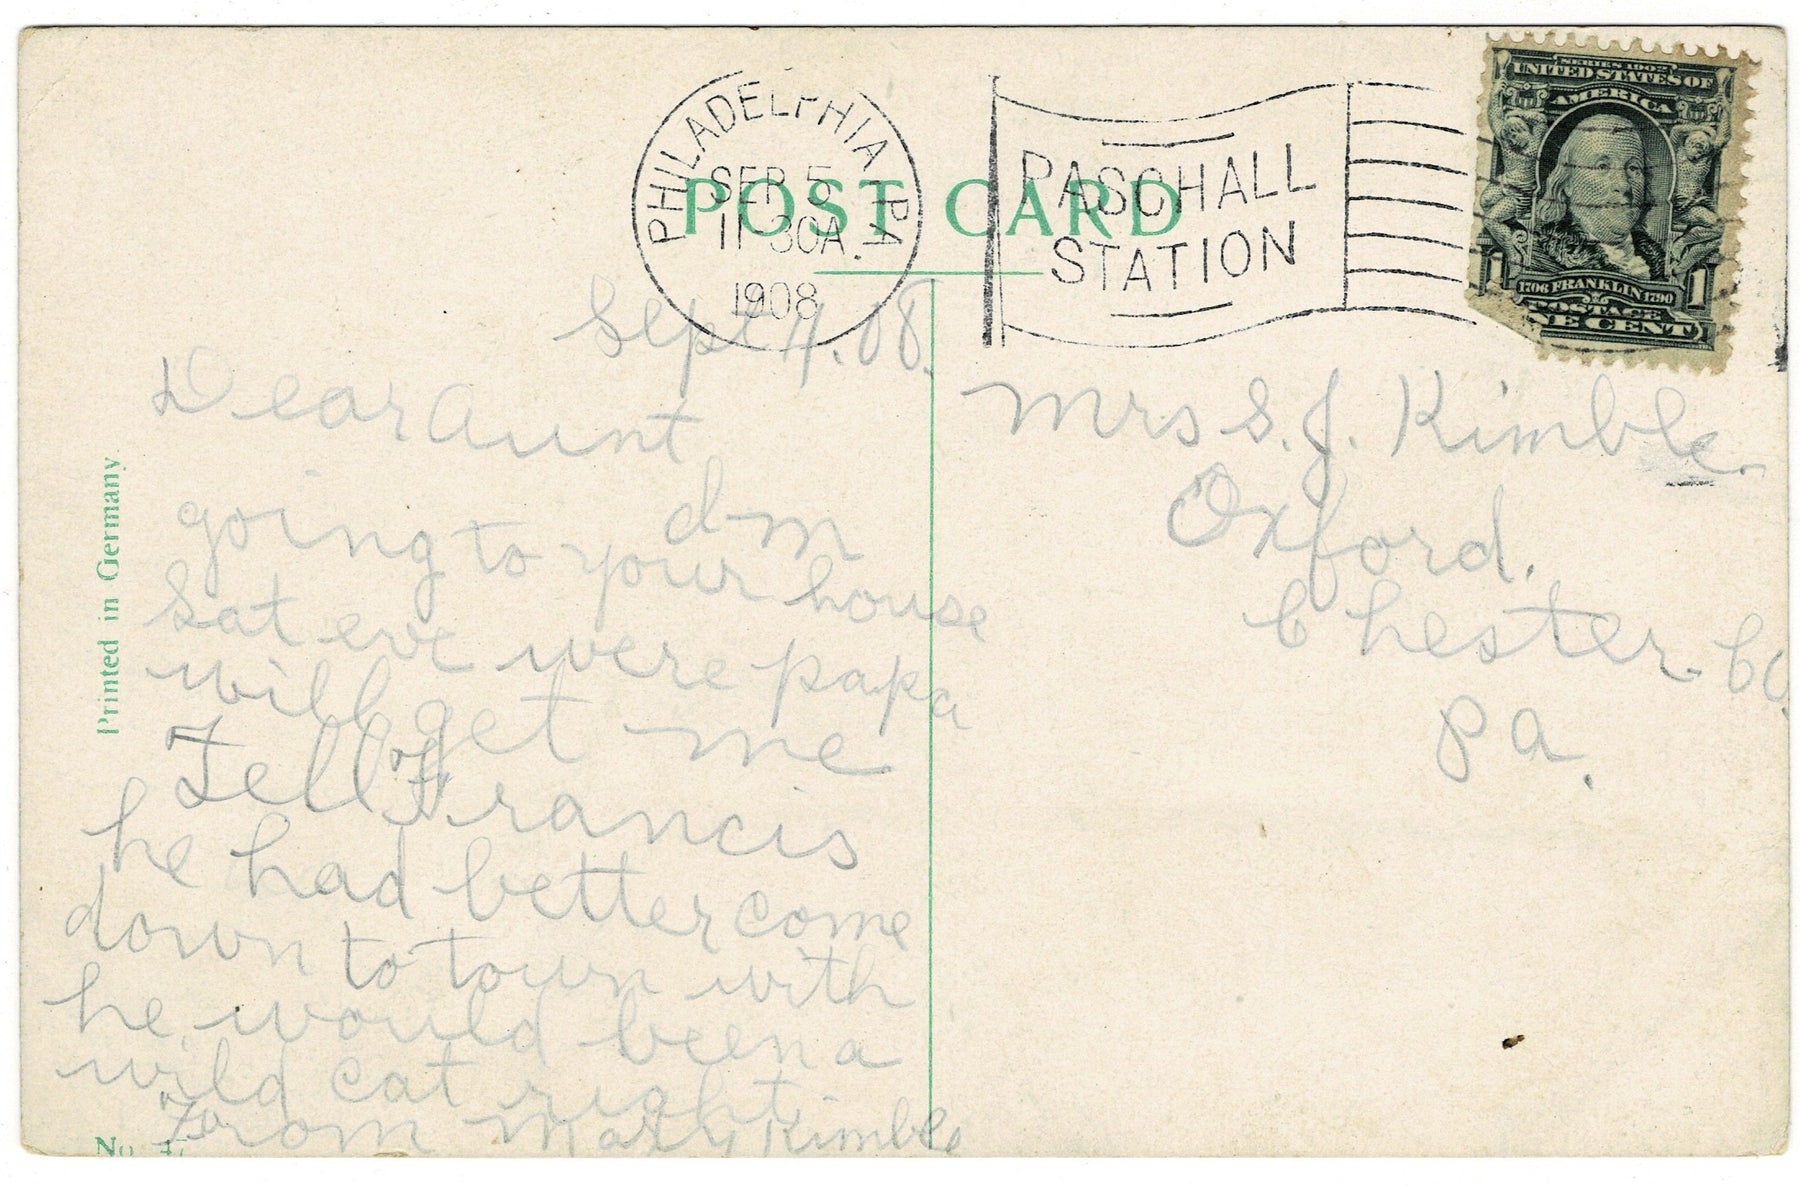 PHILADELPHIA, PA.
SEP 5
11-30A.
1908
PASCHALL
STATION
SERIES 1902
UNITED STATES OF
AMERICA
1 1706 FRANKLIN 1790 1
POSTAGE
ONE CENT
POST CARD
Sept 4. 08.
Dear Aunt
going to your house
Sat eve were papa
will get me
Tell Francis
he had better come
down to town with
he would been a
wild cat right
From Mary Kimble
Mrs S. J. Kimble.
Oxford.
Chester. Co.
Pa.
Printed in Germany.
No.